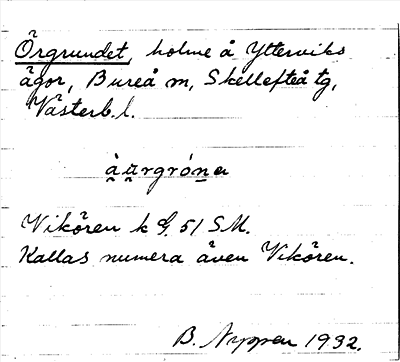 Örgrundet, holme å Ytterviks
ägor, Bureå sn, Skellefteå tg,
Västerb. l.
Vikören k G. 51 SM.
Kallas numera även Vikören.
B. Nyppen 1932.